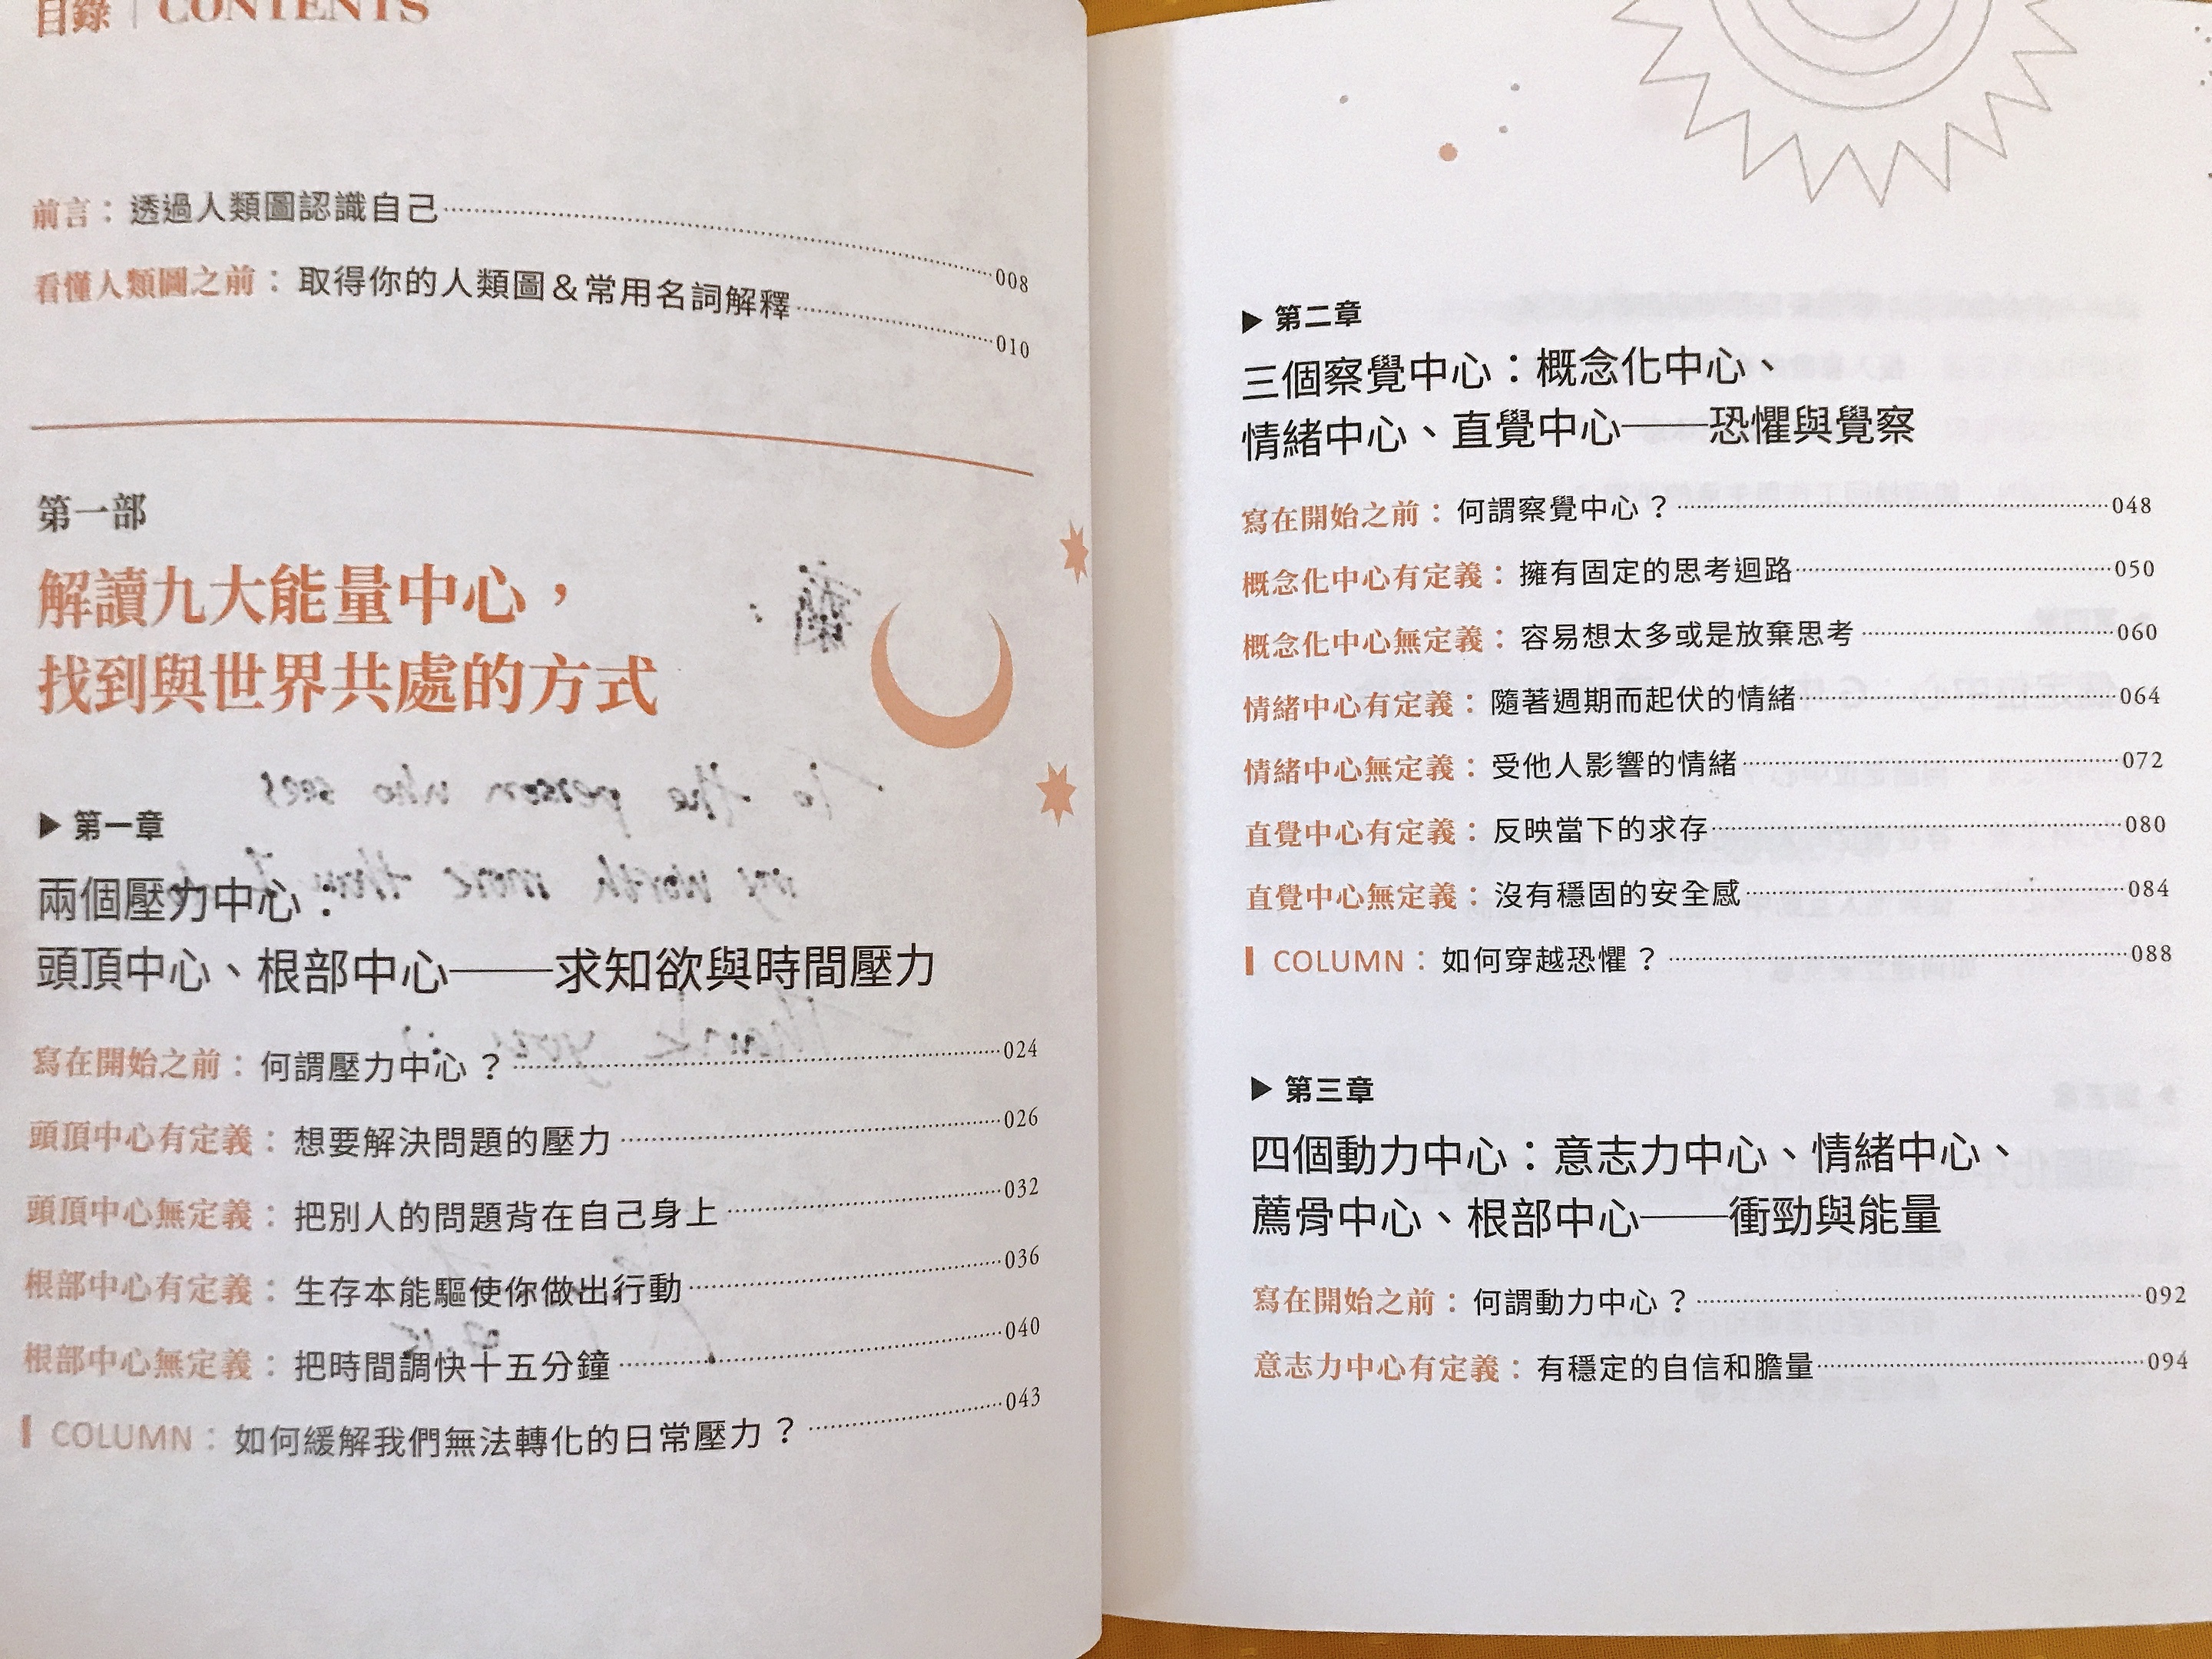 目錄 | CONTENTS
前言：透過人類圖認識自己 008
看懂人類圖之前：取得你的人類圖＆常用名詞解釋 010
第一部
解讀九大能量中心，
找到與世界共處的方式
To the person who sees
my worth more than I do
Thank you :)
▶ 第一章
兩個壓力中心：
頭頂中心、根部中心——求知欲與時間壓力
寫在開始之前：何謂壓力中心？ 024
頭頂中心有定義：想要解決問題的壓力 026
頭頂中心無定義：把別人的問題背在自己身上 032
根部中心有定義：生存本能驅使你做出行動 036
根部中心無定義：把時間調快十五分鐘 040
COLUMN：如何緩解我們無法轉化的日常壓力？ 043
▶ 第二章
三個察覺中心：概念化中心、
情緒中心、直覺中心——恐懼與覺察
寫在開始之前：何謂察覺中心？ 048
概念化中心有定義：擁有固定的思考迴路 050
概念化中心無定義：容易想太多或是放棄思考 060
情緒中心有定義：隨著週期而起伏的情緒 064
情緒中心無定義：受他人影響的情緒 072
直覺中心有定義：反映當下的求存 080
直覺中心無定義：沒有穩固的安全感 084
COLUMN：如何穿越恐懼？ 088
▶ 第三章
四個動力中心：意志力中心、情緒中心、
薦骨中心、根部中心——衝勁與能量
寫在開始之前：何謂動力中心？ 092
意志力中心有定義：有穩定的自信和膽量 094